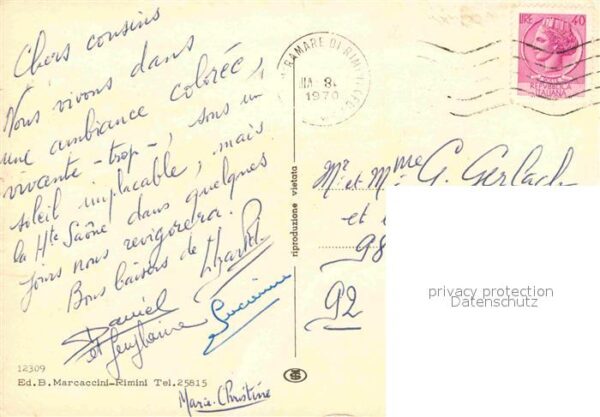 Chers cousins
Nous vivons dans
une ambiance colorée,
vivante - trop -, sous un
soleil implacable, mais
la Hte Saône dans quelques
jours nous revigorera.
Bons baisers de
Daniel
et Ghyslaine
Lucienne
Marie-Christine
12309
Ed. B. Marcaccini-Rimini Tel. 25815
riproduzione vietata
RAMARE DI RIMINI
8
1970
LIRE 40
REPUBBLICA
ITALIANA
Mr et Mme G. Gerlach
et
98
92
privacy protection
Datenschutz